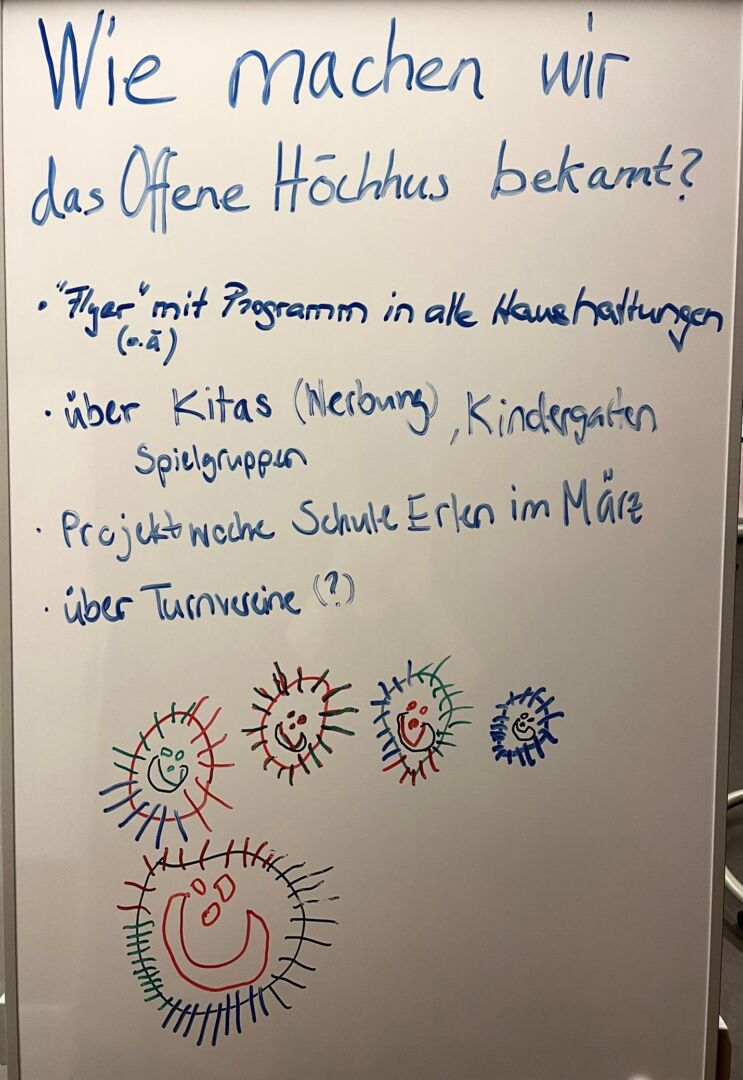 Wie machen wir
das Offene Höchhus bekannt?
• "Flyer" mit Programm in alle Haushaltungen
(o.ä)
• über Kitas (Werbung), Kindergarten
Spielgruppen
• Projektwoche Schule Erlen im März
• über Turnvereine (?)